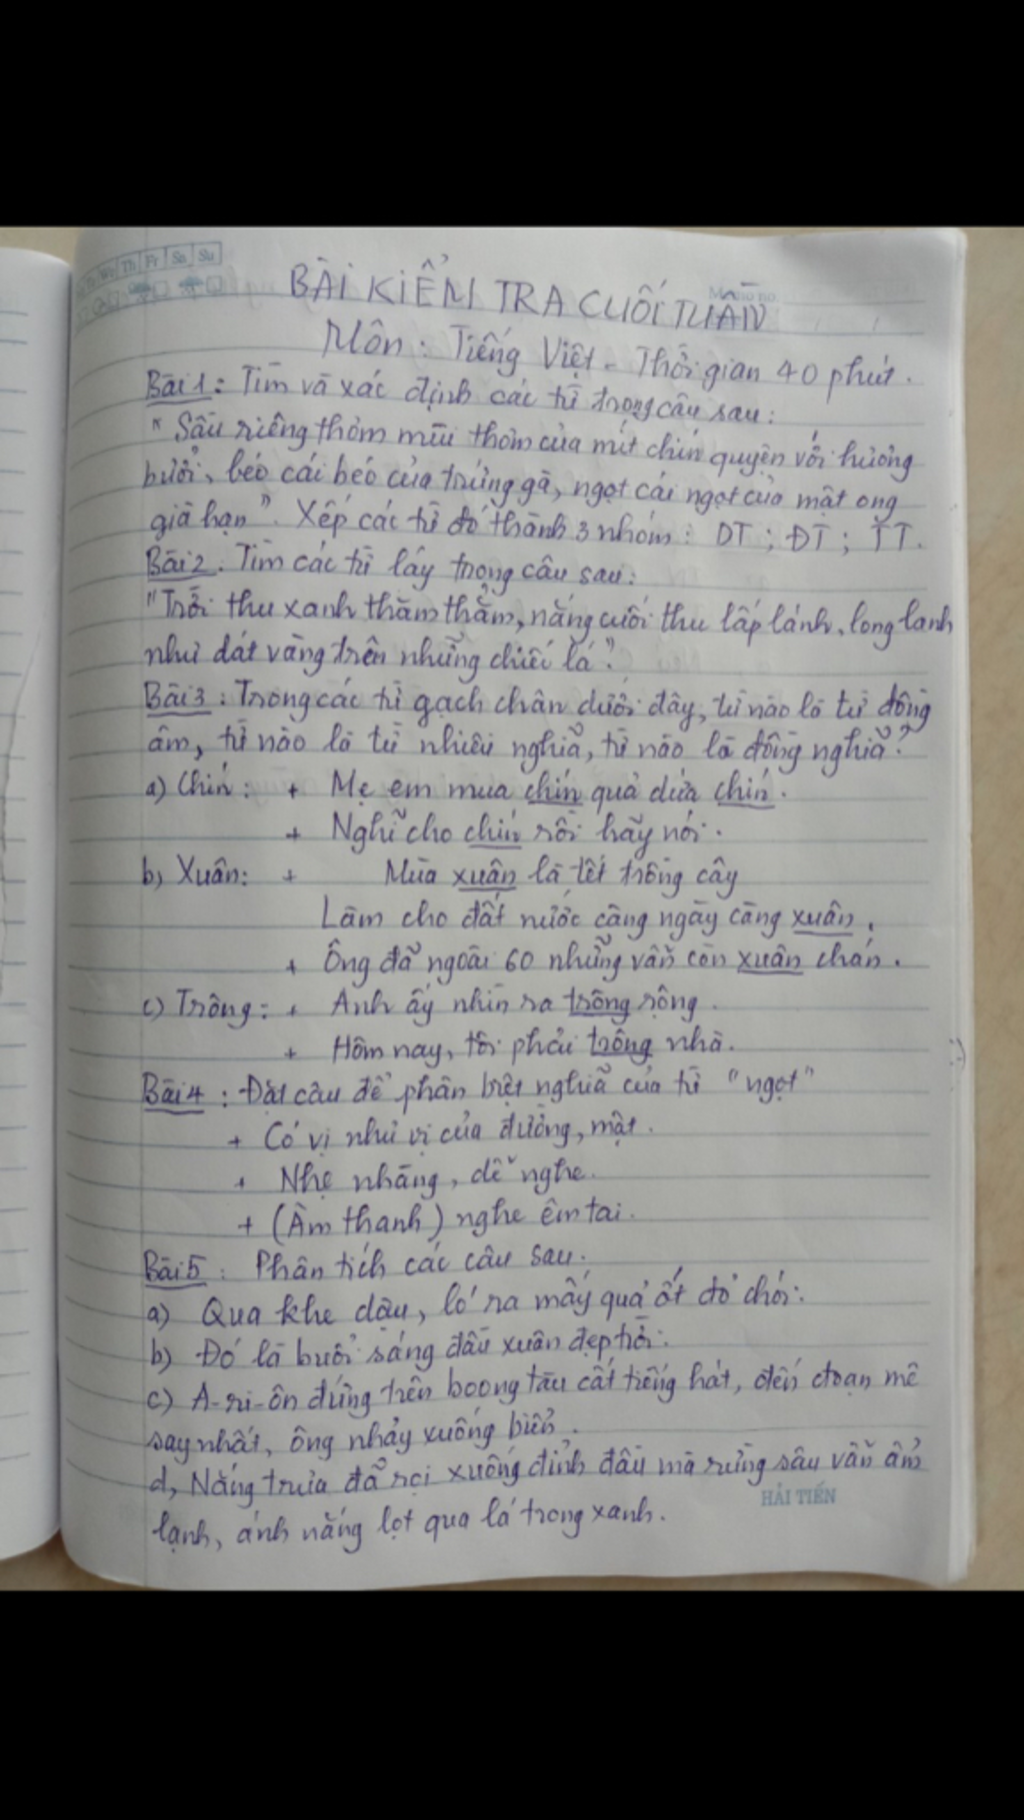 Tu We Th Fr Sa Su
Memo no.
BÀI KIỂM TRA CUỐI TUẦN
Môn : Tiếng Việt - Thời gian 40 phút.
Bài 1 : Tìm và xác định các từ trong câu sau :
"Sầu riêng thơm mùi thơm của mít chín quyện với hương
bưởi, béo cái béo của trứng gà, ngọt cái ngọt của mật ong
già hạn". Xếp các từ đó thành 3 nhóm : DT ; ĐT ; TT.
Bài 2 : Tìm các từ láy trong câu sau :
"Trời thu xanh thăm thẳm, nắng cuối thu lấp lánh, long lanh
như dát vàng trên những chiếc lá".
Bài 3 : Trong các từ gạch chân dưới đây, từ nào là từ đồng
âm, từ nào là từ nhiều nghĩa, từ nào là đồng nghĩa?
a) Chín : + Mẹ em mua chín quả dứa chín.
+ Nghĩ cho chín rồi hãy nói.
b) Xuân : + Mùa xuân là tết trồng cây
Làm cho đất nước càng ngày càng xuân.
+ Ông đã ngoài 60 nhưng vẫn còn xuân chán.
c) Trông : + Anh ấy nhìn ra trông rộng.
+ Hôm nay, tôi phải trông nhà.
Bài 4 : Đặt câu để phân biệt nghĩa của từ "ngọt"
+ Có vị như vị của đường, mật.
+ Nhẹ nhàng, dễ nghe.
+ (Âm thanh) nghe êm tai.
Bài 5 : Phân tích các câu sau.
a) Qua khe dậu, ló ra mấy quả ớt đỏ chói.
b) Đó là buổi sáng đầu xuân đẹp trời.
c) A-ri-ôn đứng trên boong tàu cất tiếng hát, đến đoạn mê
say nhất, ông nhảy xuống biển.
d, Nắng trưa đã rọi xuống đỉnh đầu mà rừng sâu vẫn ẩm
HẢI TIẾN
lạnh, ánh nắng lọt qua lá trong xanh.